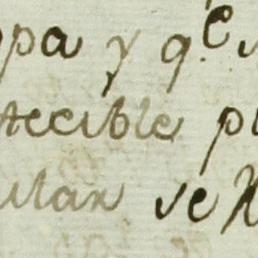 opa y q.e
tecible p
ular se